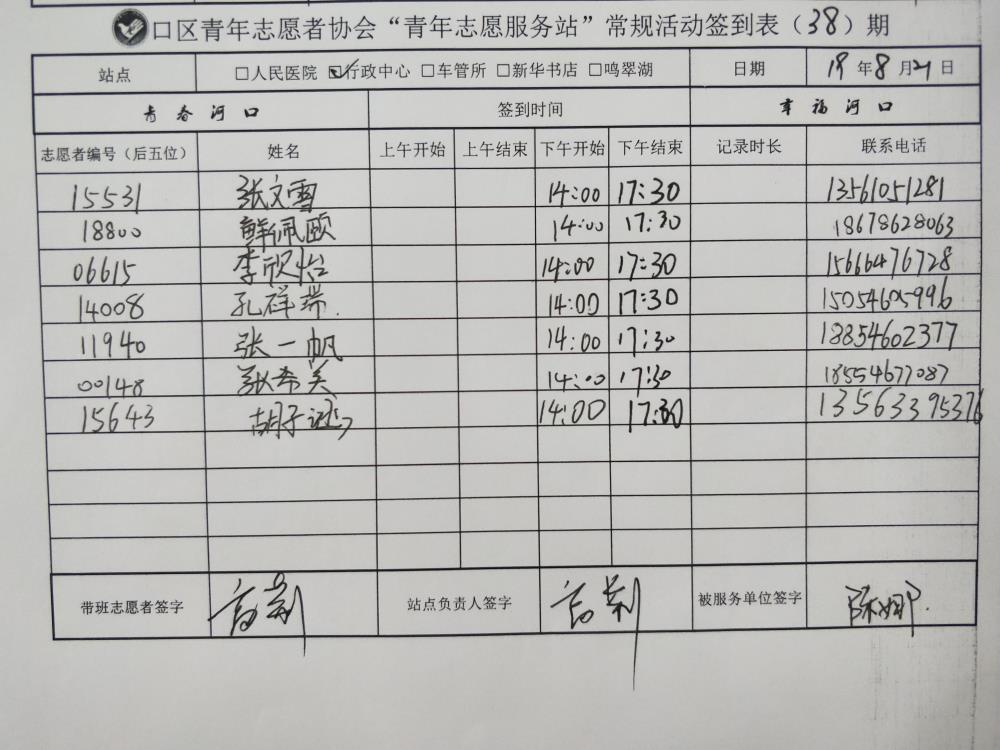 口区青年志愿者协会“青年志愿服务站”常规活动签到表（38）期
站点 □人民医院 ☑行政中心 □车管所 □新华书店 □鸣翠湖 日期 19年8月21日
青春河口 签到时间 幸福河口
志愿者编号（后五位） 姓名 上午开始 上午结束 下午开始 下午结束 记录时长 联系电话
15531 张文雪 14:00 17:30 13561051281
18800 鲜佩瓯 14:00 17:30 18678628063
06615 李欣怡 14:00 17:30 15666476728
14008 孔祥瑞. 14:00 17:30 15054605996
11940 张一帆 14:00 17:30 18854602377
00148 张希美 14:00 17:30 18554677087
15643 胡子 14:00 17:30 13563395376
带班志愿者签字 站点负责人签字 被服务单位签字 陈娜.